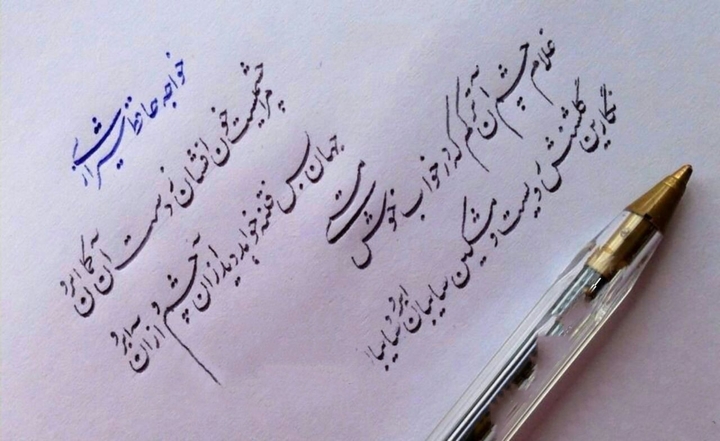 خواجه حافظ شیرازی
مرا چشمیست خون افشان ز دست آن کمان ابرو
جهان بس فتنه خواهد دید از آن چشم و از آن ابرو
غلام چشم آن ترکم که در خواب خوش مستی
نگارین گلشنش رویست و مشکین سایبان ابرو